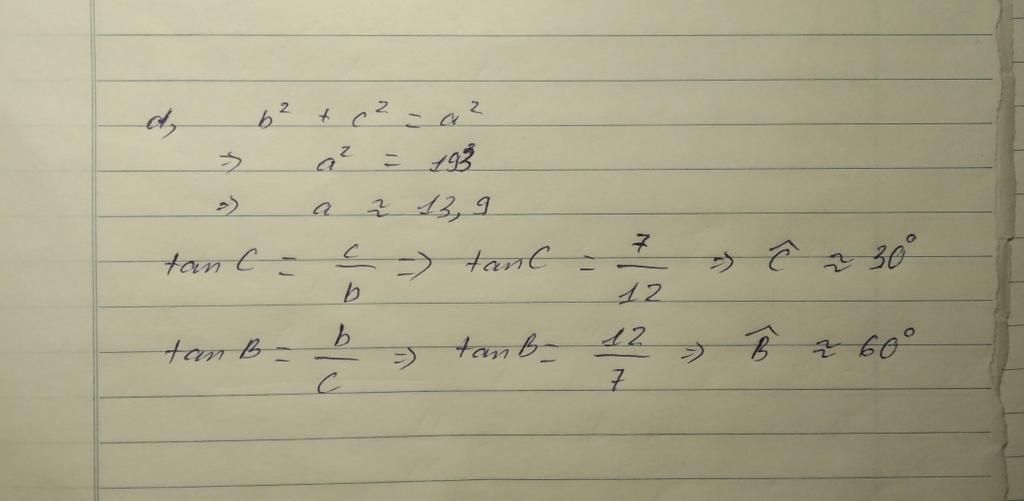 d, b² + c² = a²
=> a² = 193
=> a ≈ 13,9
tan C = c/b => tan C = 7/12 => Ĉ ≈ 30°
tan B = b/c => tan B = 12/7 => B̂ ≈ 60°